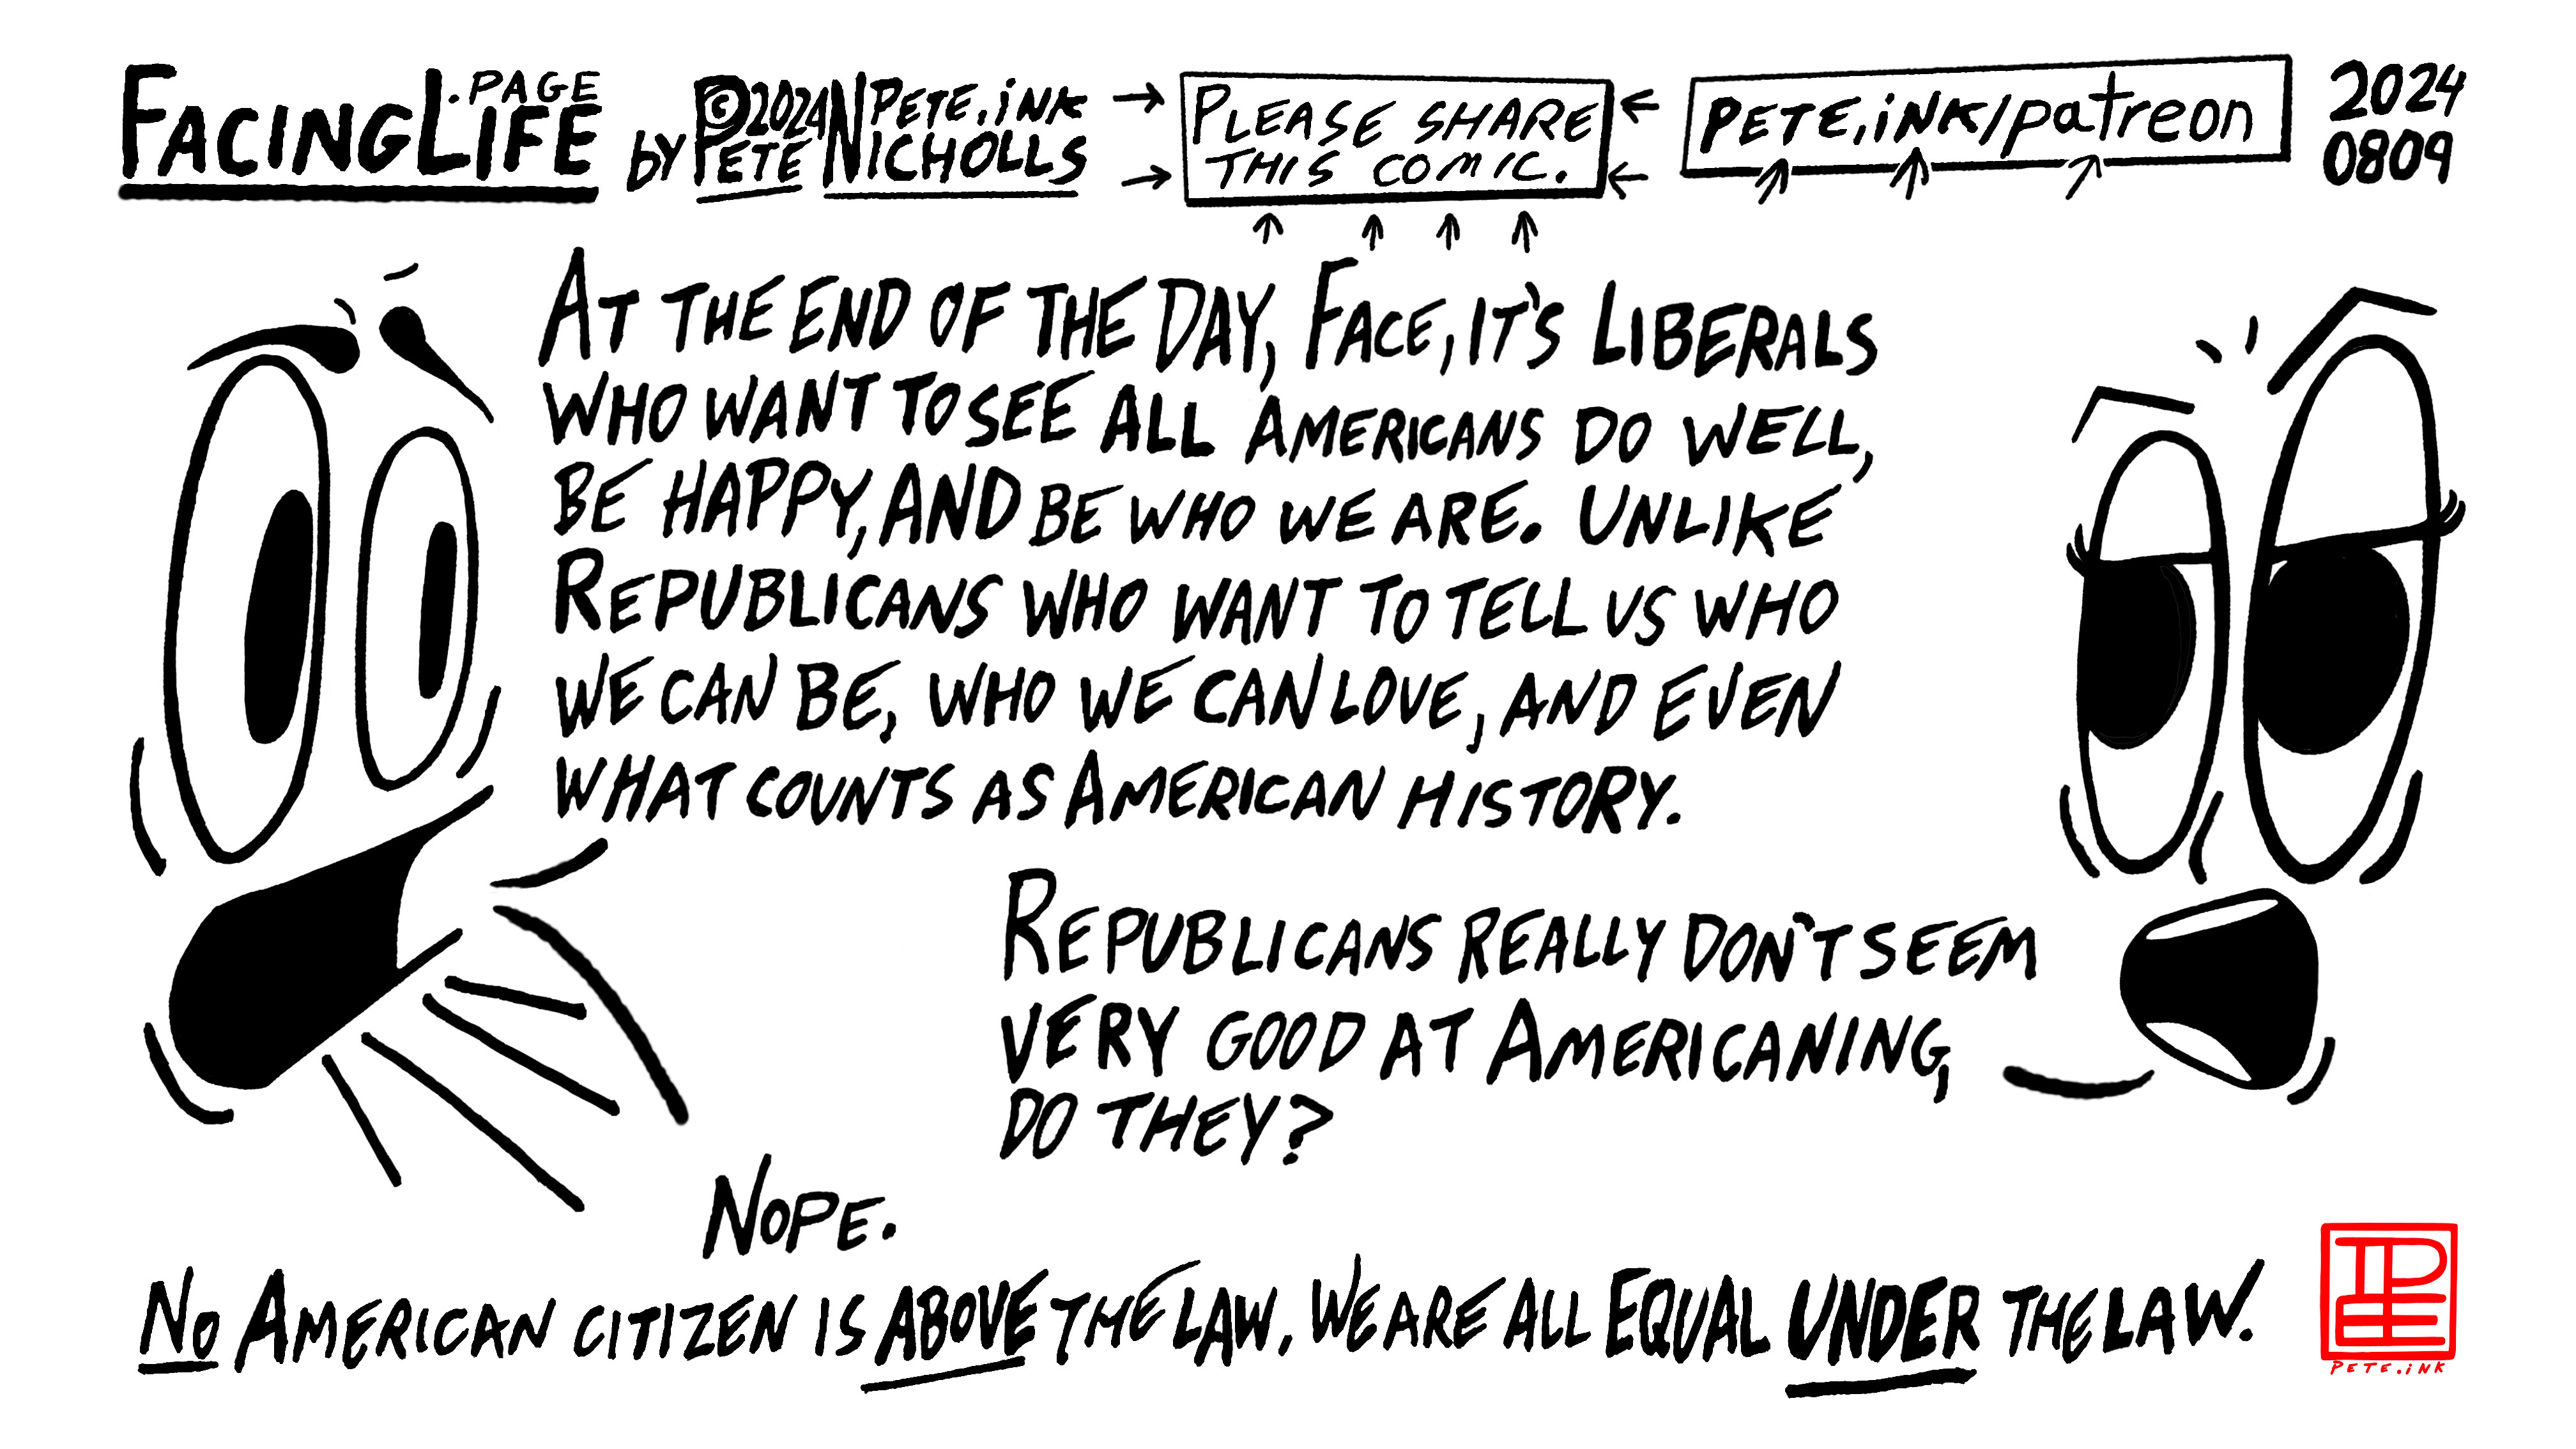 FACINGLIFE.PAGE
BY PETE NICHOLLS ©2024 PETE.INK
PLEASE SHARE
THIS COMIC.
PETE.INK/patreon
2024
0809
AT THE END OF THE DAY, FACE, IT'S LIBERALS
WHO WANT TO SEE ALL AMERICANS DO WELL,
BE HAPPY, AND BE WHO WE ARE. UNLIKE
REPUBLICANS WHO WANT TO TELL US WHO
WE CAN BE, WHO WE CAN LOVE, AND EVEN
WHAT COUNTS AS AMERICAN HISTORY.
REPUBLICANS REALLY DON'T SEEM
VERY GOOD AT AMERICANING,
DO THEY?
NOPE.
NO AMERICAN CITIZEN IS ABOVE THE LAW. WE ARE ALL EQUAL UNDER THE LAW.
PETE.INK